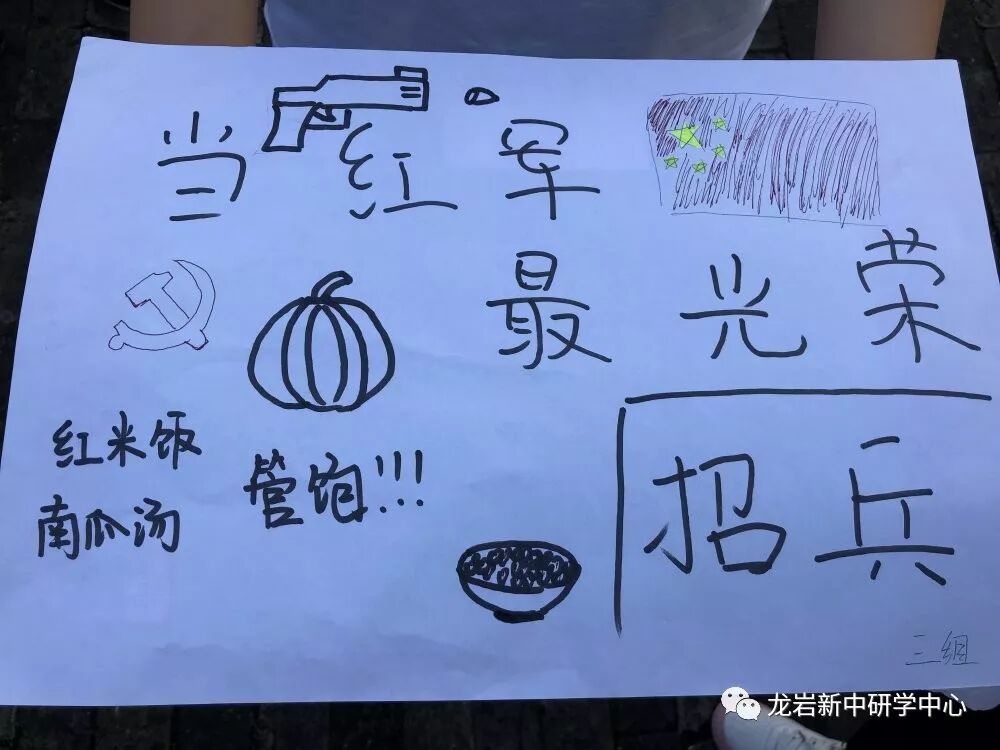 当红军
最光荣
红米饭
南瓜汤
管饱!!!
招兵
三组
龙岩新中研学中心